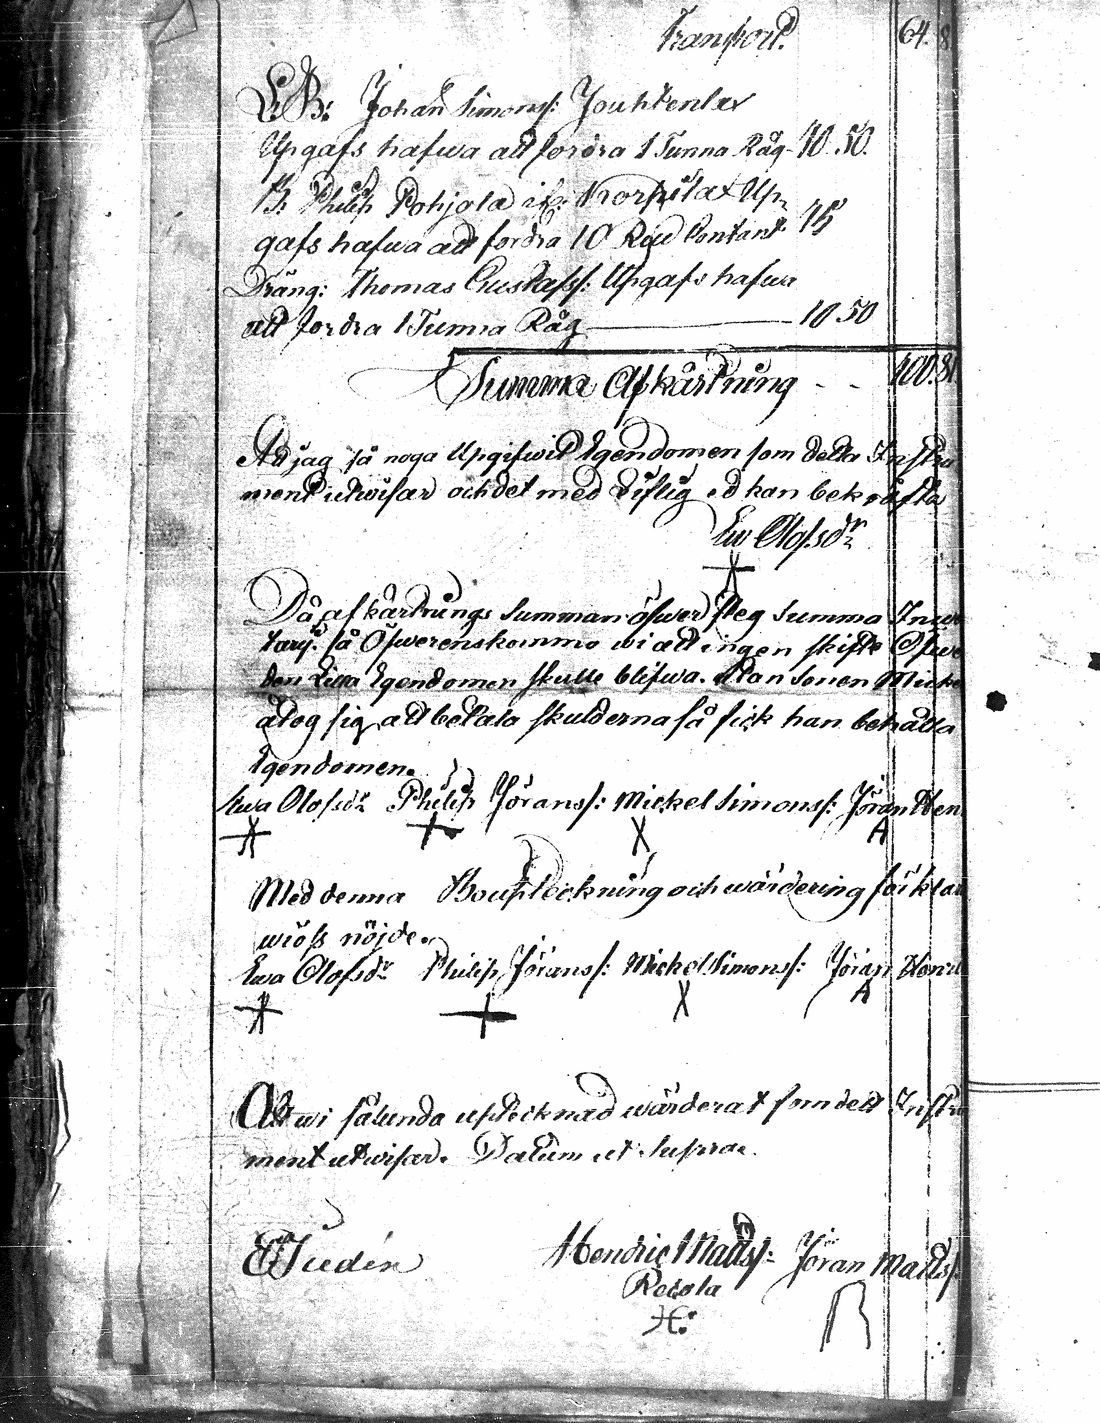 Transport. 64. 8
L: B: Johan Simonss: Jouhtenlax
Upgafs hafwa att fordra 1 Tunna Råg 10. 50.
B: Philip Pohjola if: Korpilax Up
gafs hafwa att fordra 10 Rdr Contant 15
Dräng: Thomas Gustafss: Upgafs hafwa
att fordra 1 Tunna Råg 10 50
Summa Afkårtning - - 100. 81
At jag så noga Upgifwit Egendomen som detta Instru
ment utwisar och det med Liflig ed kan bekräfta
Ew Olofsdr
Då afkårtnings Summan öfwersteg Summa Inwe
tary. så Öfwerenskommo wi att ingen skifte Öfwe
den Lilla Egendomen skulle blifwa. Utan Sonen Micke
åtog sig att betala skulderna så fick han behålla
Egendomen.
Ewa Olofsdr Philip Jöranss: Mickel Simonss: Jöran Hen
Med denna Bouptekning och wärdering förklar
wi oss nöjde.
Ewa Olofsdr Philip Jöranss: Mickel Simonss: Jöran Hen
At wi sålunda uptecknad wärderat som dett Instru
ment utwisar. Datum ut Supra.
Hendric Matss: Jöran Matss:
H: